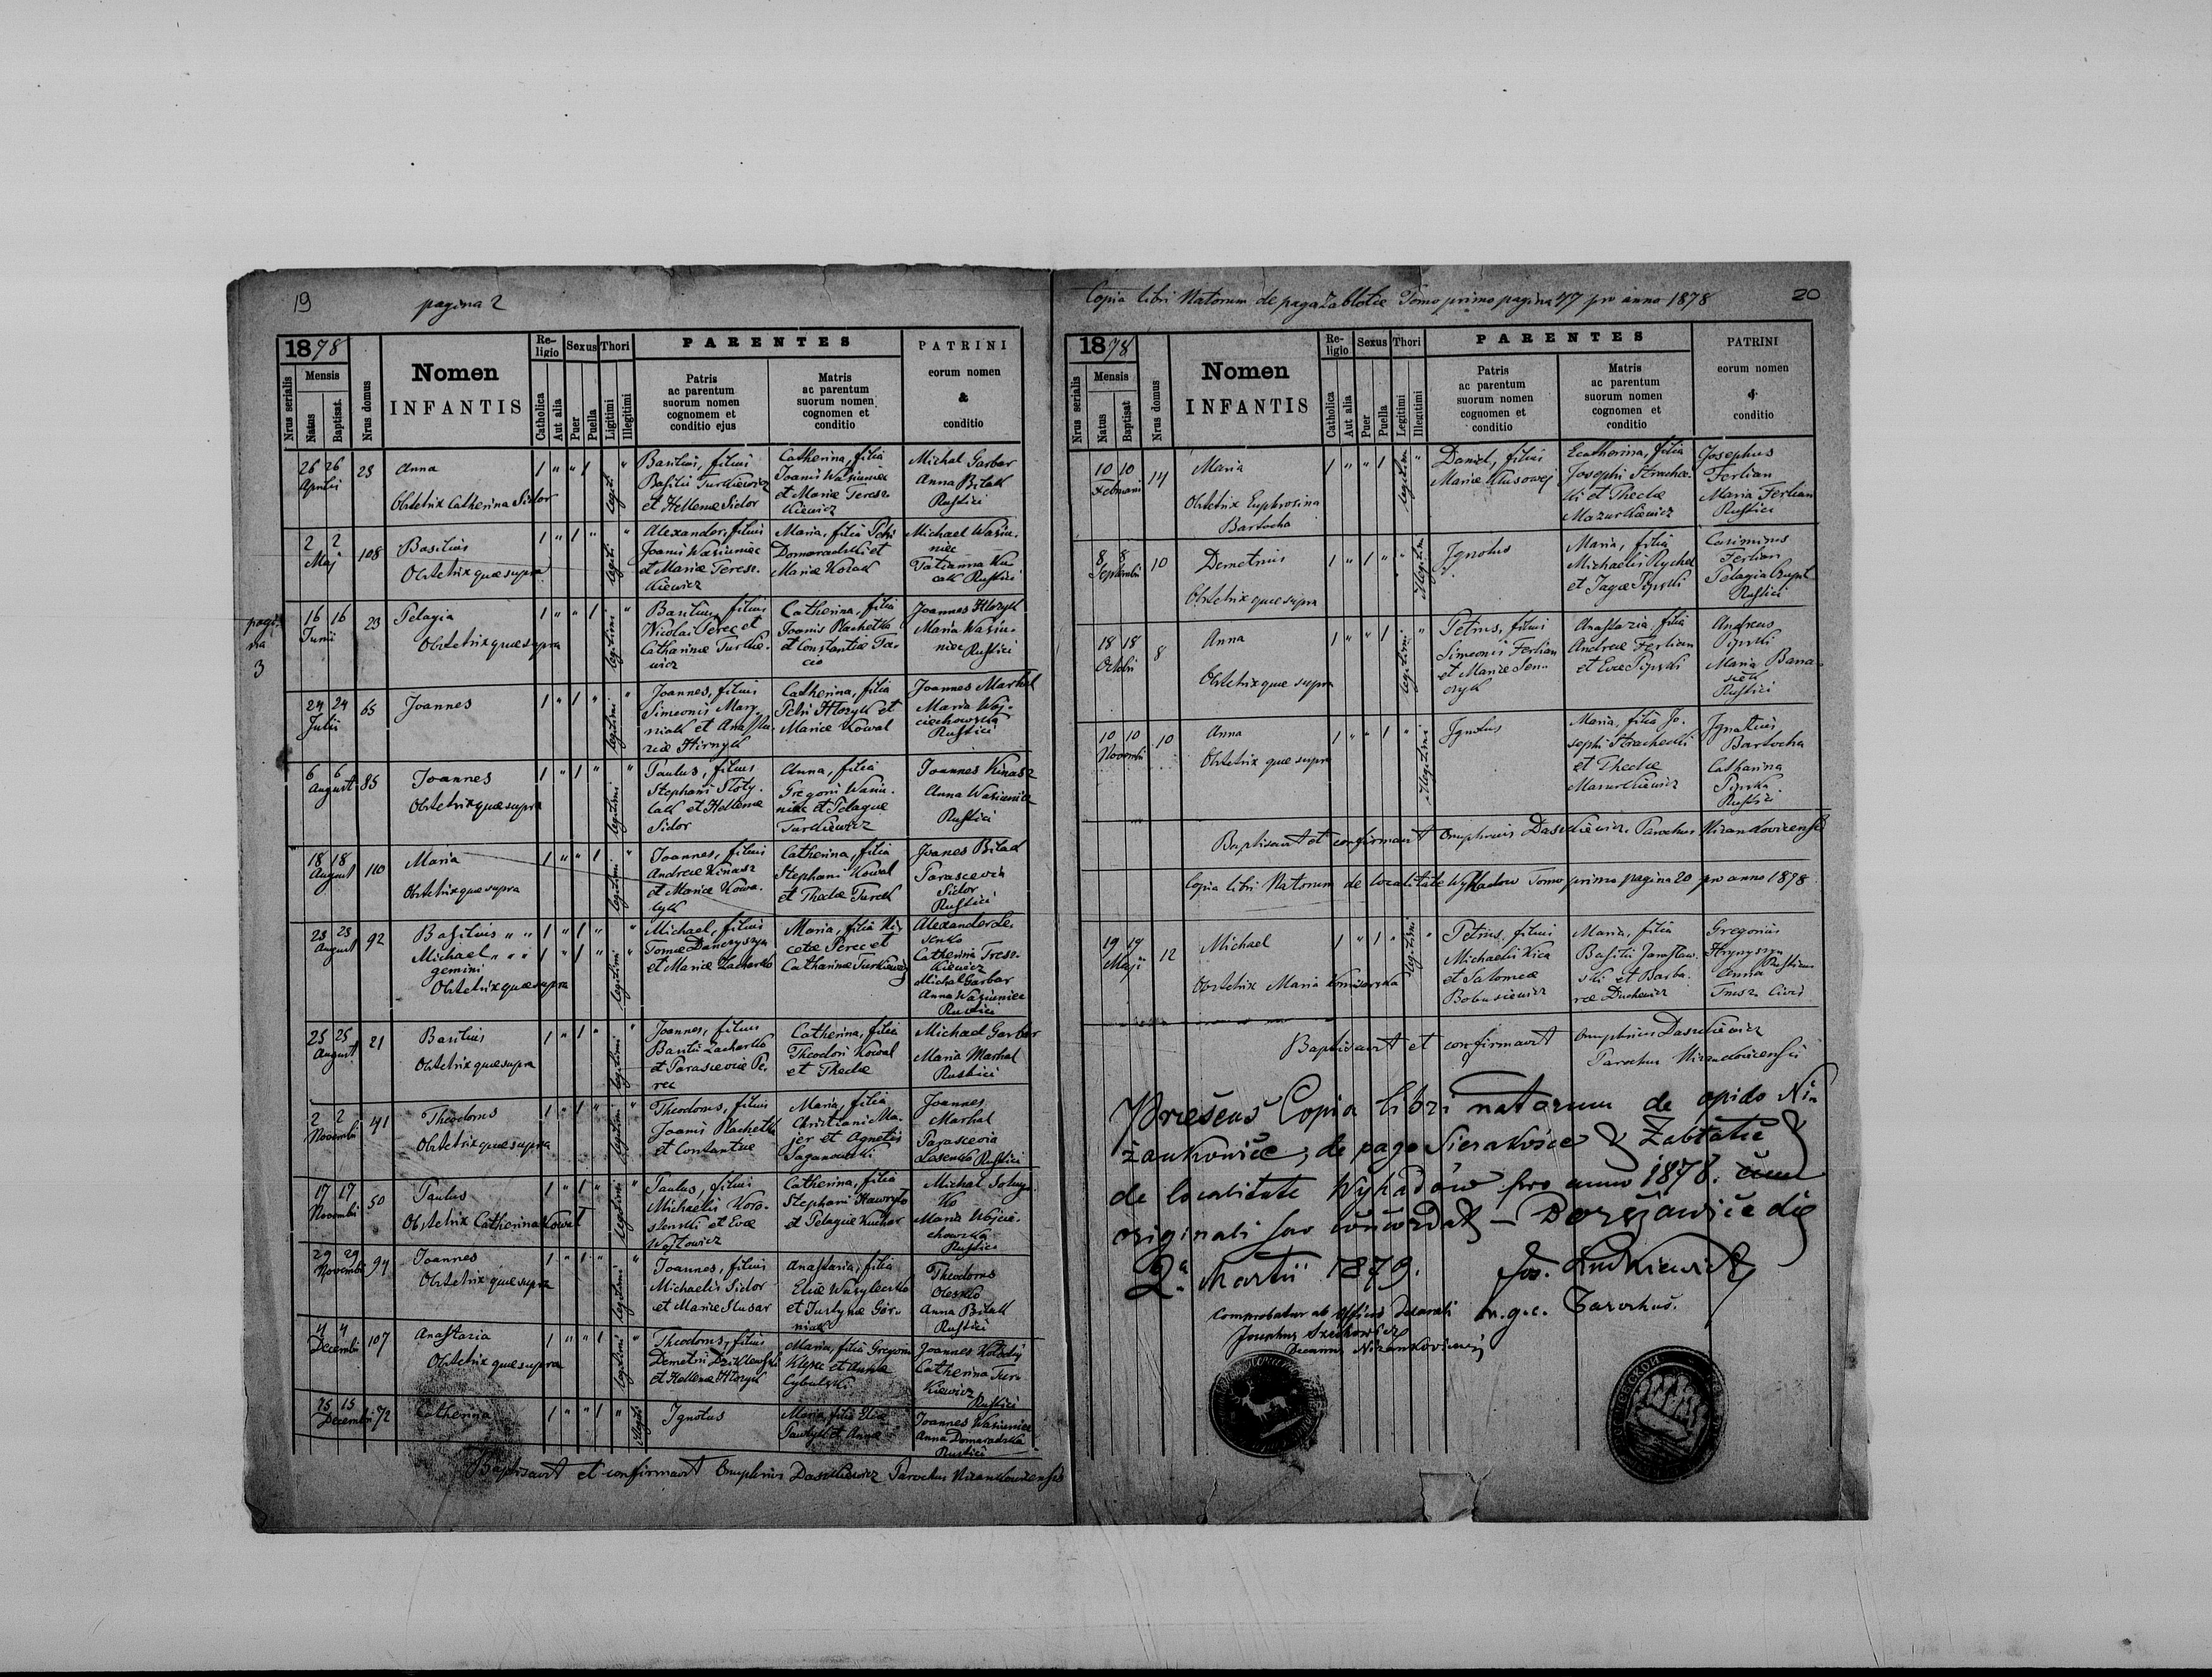 19
pagina 2
1878
Nrus serialis
Mensis
Natus
Baptisat.
Nrus domus
Nomen
INFANTIS
Re-
ligio
Catholica
Aut alia
Sexus
Puer
Puella
Thori
Ligitimi
Illegitimi
PARENTES
Patris
ac parentum
suorum nomen
cognomem et
conditio ejus
Matris
ac parentum
suorum nomen
cognomen et
conditio
PATRINI
eorum nomen
&
conditio
26 26
Aprilis
23
Anna
Obstetrix Catherina Sidor
1 " " 1 legiti "
Basilius, filius
Basilii Turkiewicz
et Hellenae Sidor
Catherina, filia
Joanis Wasiuniec
et Mariae Teresz-
kiewicz
Michal Garbar
Anna Bilak
Rustici
2 2
Maj
108
Basilius
Obstetrix quae supra
1 " 1 " legiti "
Alexander, filius
Joanis Wasiuniec
et Mariae Teresz-
kiewicz
Maria, filia Petri
Domaradzki et
Mariae Kozak
Michael Wasiu-
niec
Tatianna Ku-
cak Rustici
pagi-
na
3
16 16
Junii
23
Pelagia
Obstetrix quae supra
1 " " 1 legitimi "
Basilius, filius
Nicolai Perec et
Catharinae Turkie-
wicz
Catherina, filia
Joanis Machetka
et Constantiae
Joannes Hloryk
Maria Wasiu-
niec Rustici
24 24
Julii
65
Joannes
1 " 1 " legitimi "
Joannes, filius
Simeonis Mary-
niak et Anasta-
ziae Hirnyk
Catherina, filia
Petri Hloryk et
Mariae Kowal
Joannes Markal
Maria Woj-
ciechowska
Rustici
6 6
August
85
Joannes
Obstetrix quae supra
1 " 1 " legitimi "
Paulus, filius
Stephani
et Hellenae
Sidor
Anna, filia
Gregorii Wasiu-
niec et Pelagiae
Turkiewicz
Joannes Kinasz
Anna Wasiuniec
Rustici
18 18
August
110
Maria
Obstetrix quae supra
1 " " 1 legitimi "
Joannes, filius
Andreae Kinasz
et Mariae Kowa-
lyk
Catherina, filia
Stephani Kowal
et Theclae Turek
Joanes Bilak
Parascevia
Sidor
Rustici
23 23
August
92
Basilius " "
Michael " "
gemini
Obstetrix quae supra
1 " 1 " legitimi "
1 " 1 " "
Michael, filius
Tomae Danczyszyn
et Mariae Zacharko
Maria, filia Ni-
cetae Perec et
Catharinae Turkiewicz
Alexander Le-
senko
Catherina Teresz-
kiewicz
Michal Garbar
Anna Wasiuniec
Rustici
25 25
August
21
Basilius
Obstetrix quae supra
1 " 1 " legitimi "
Joannes, filius
Basilii Zacharko
et Parasceviae Pe-
rec
Catherina, filia
Theodori Kowal
et Theclae
Michael Garbar
Maria Markal
Rustici
2 2
Novembri
141
Theodorus
Obstetrix quae supra
1 " 1 " legitimi "
Theodorus, filius
Joanis Machetka
et Constantiae
Maria, filia
Christiani Ma-
jer et Agnetis
Saganowski
Joannes
Markal
Parascevia
Lesenko Rustici
17 17
Novembri
50
Paulus
Obstetrix Catherina Kowal
1 " 1 " legitimi "
Paulus, filius
Michaelis Koro-
slenski et Evae
Wojtowicz
Catherina, filia
Stephani Hawryto
et Pelagiae Kuchar
Michal
Ko
Maria Wojcie-
chowska
Rustici
29 29
Novembri
94
Joannes
Obstetrix quae supra
1 " 1 " legitimi "
Joannes, filius
Michaelis Sidor
et Mariae Slusar
Anastazia, filia
Eliae Wasylecsko
et Justynae Gór-
niak
Theodorus
Olesko
Anna Bilak
Rustici
4 4
Decembri
107
Anastazia
Obstetrix quae supra
1 " " 1 legitimi "
Theodorus, filius
Demetrii
et Hellenae Hloryk
Maria, filia Gregorii
et Annae
Cybulski
Joannes
Catherina Tur-
kiewicz
Rustici
15 15
Decembri
72
Catherina
1 " " 1 " illegiti
Ignotus
Maria filia Eliae
Pawlyk et Annae
Joannes Wasiuniec
Anna Domaradzka
Rustici
Baptisavit et confirmavit Onuphrius Daszkiewicz Parochus Nizankowicensis
Copia libri Natorum de paga Zablotce Tomo primo pagina 47 pro anno 1878
20
1878
Nrus serialis
Mensis
Natus
Baptisat
Nrus domus
Nomen
INFANTIS
Re-
ligio
Catholica
Aut alia
Sexus
Puer
Puella
Thori
Legitimi
Illegitimi
PARENTES
Patris
ac parentum
suorum nomen
cognomen et
conditio
Matris
ac parentum
suorum nomen
cognomen et
conditio
PATRINI
eorum nomen
&
conditio
10 10
Februarii
14
Maria
Obstetrix Euphrosina
Bartocha
1 " " 1 legitim "
Daniel, filius
Mariae Klusowej
Ecatherina, filia
Josephi Strachec-
ki et Theclae
Mazurkiewicz
Josephus
Ferlian
Maria Ferlian
Rustici
8 8
Septembri
10
Demetrius
Obstetrix quae supra
1 " 1 " " Illegitim
Ignotus
Maria, filia
Michaelis Rychel
et Jagae Pipski
Casimirus
Ferlian
Pelagia
Rustici
18 18
Octobri
8
Anna
Obstetrix quae supra
1 " " 1 legitimi "
Petrus, filius
Simeonis Ferlian
et Mariae Sen-
czyk
Anastazia, filia
Andreae Ferlian
et Evae Pipski
Andreas
Pipski
Maria Bana-
siek
Rustici
10 10
Novembri
10
Anna
Obstetrix quae supra
1 " " 1 " illegitimi
Ignotus
Maria, filia Jo-
sephi Strachecki
et Theclae
Mazurkiewicz
Ignatius
Bartocha
Catharina
Pipska
Rustici
Baptisavit et confirmavit Onuphrius Daszkiewicz Parochus Nizankovicensis
Copia libri Natorum de localitate Wykadow Tomo primo pagina 20 pro anno 1878
19 19
Maji
12
Michael
Obstetrix Maria Komisarska
1 " 1 " legitimi "
Petrus, filius
Michaelis Kica
et Salomeae
Bobusiewicz
Maria, filia
Basilii Jaroslaw-
ski et Barba-
rae Duchewicz
Gregorius
Hrynyszyn
Rusticus
Anna
Civis
Baptisavit et confirmavit Onuphrius Daszkiewicz
Parochus Nizankovicensis
Praesens Copia libri natorum de opido Ni-
żankowice, de pago Sierakośce & Zabłotce &
de localitate Wykadów pro anno 1878. cum
originali suo concordat – die
2a Martii 1879.
m.g.c. Parochus.
Comprobatur ab officio decanali
Josephus
Decanus Nizankovicensis